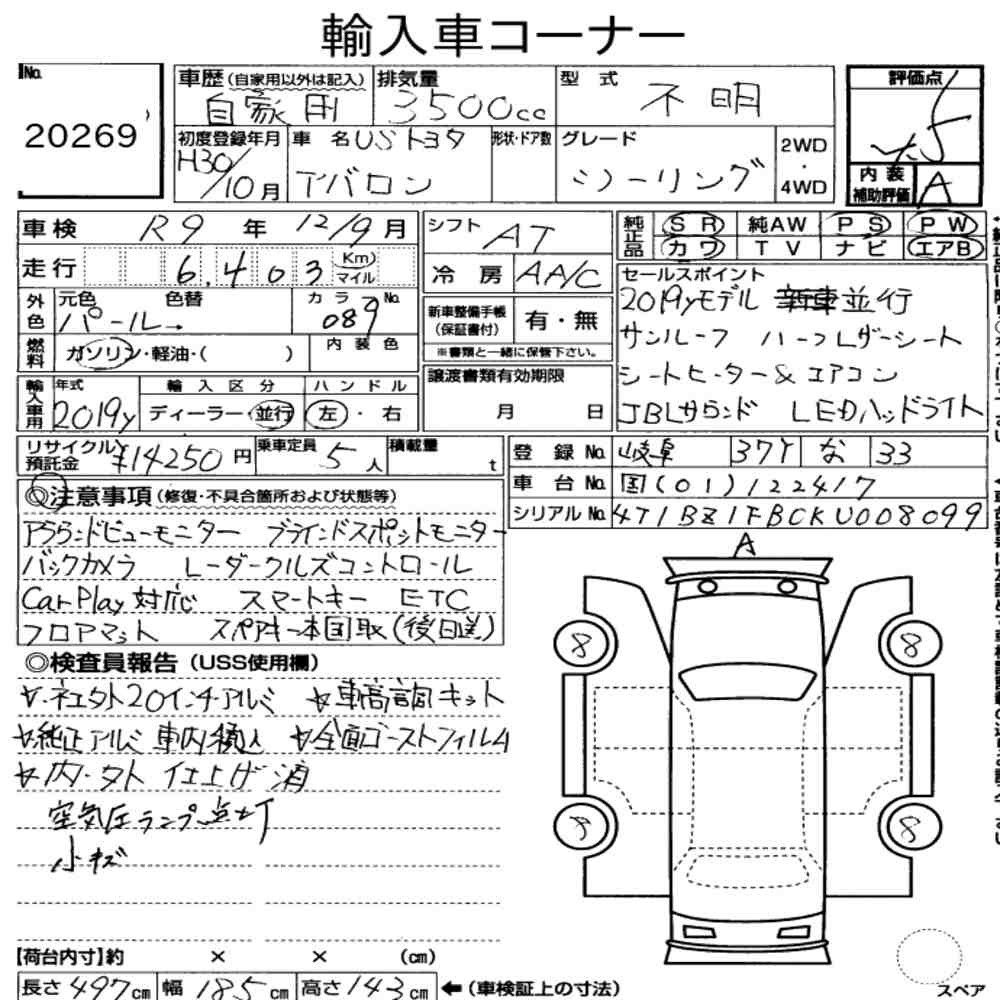 輸入車コーナー
No. 20269
車歴（自家用以外は記入） 自家用
排気量 3500cc
型式 不明
評価点 4.5
初度登録年月 H30/10月
車名 USトヨタ アバロン
形状・ドア数
グレード ツーリング
2WD・4WD
内装補助評価 A
車検 R9年 12/9月
シフト AT
純正品 SR 純AW PS PW
カワ TV ナビ エアB
走行 6,403 Km マイル
冷房 AA/C
セールスポイント
2019yモデル 新車並行
サンルーフ ハーフレザーシート
シートヒーター&エアコン
JBLサウンド LEDヘッドライト
外色 元色 パール 色替
カラーNo. 089
新車整備手帳（保証書付） 有・無
※書類と一緒に保管下さい。
燃料 ガソリン・軽油・（ ）
内装色
譲渡書類有効期限 月 日
輸入車用 年式 2019y
輸入区分 ディーラー・並行
ハンドル 左・右
リサイクル預託金 ¥14250円
乗車定員 5人
積載量 t
登録No. 岐阜 377 な 33
車台No. 国(01)122417
シリアルNo. 4T1BZ1FBCKU008099
◎注意事項（修復・不具合箇所および状態等）
アラウンドビューモニター ブラインドスポットモニター
バックカメラ レーダークルーズコントロール
CarPlay対応 スマートキー ETC
フロアマット スペアキー本国取(後日送)
◎検査員報告（USS使用欄）
ネ土外20インチアルミ 車高調キット
純正アルミ車内積込 全面ゴーストフィルム
内・外仕上げ済
空気圧ランプ点灯
小キズ
A
8 8
8 8
【荷台内寸】約 × × （cm）
長さ 497cm 幅 185cm 高さ 143cm ←（車検証上の寸法）
スペア